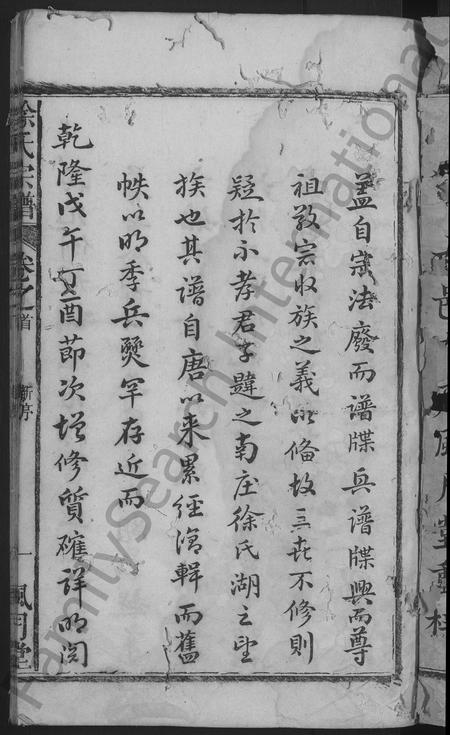 蓋自宗法廢而譜牒興譜牒興而尊
祖敬宗收族之義以備故三世不修則
疑於不孝君子韙之南庄徐氏湖之望
族也其譜自唐以來累經淯輯而舊
帙以明季兵燹罕存近而
乾隆戊午丁酉節次增修質確詳明閱
徐氏宗譜
卷之首
新序
一
風月堂
FamilySearch International